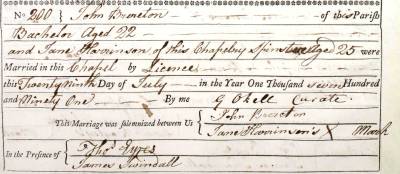 No. 200 } John Brereton of this Parish
Bachelor Aged 22
and Jane Howinson of this Chapelry Spinster Aged 25 were
Married in this Chapel by Licence
this Twenty Ninth Day of July in the Year One Thousand seven Hundred
and Ninety One By me G Okell Curate.
This Marriage was solemnized between Us { John Brereton
Jane Howinson's X Mark
In the Presence of { Thos. Eyres
James Swindall